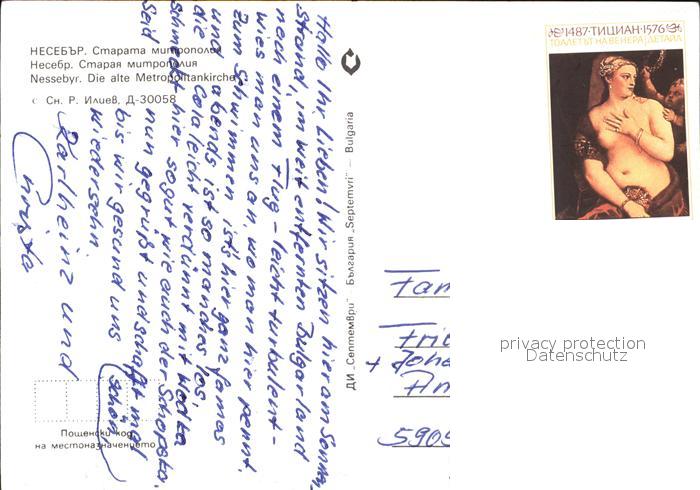 НЕСЕБЪР. Старата митрополия
Несебр. Старая митрополия
Nessebyr. Die alte Metropolitankirche
с Сн. Р. Илиев, Д-30058
Hallo Ihr Lieben! Wir sitzen hier am Sonn.
Strand, im weit entfernten Bulgarland
nach einem Flug - leicht turbulent -
wies man uns an, wo man hier pennt.
Zum Schwimmen ist's hier ganz famos
und abends ist so manches los,
die Cola leicht verdünnt mit Wodka
schmeckt hier so gut wie auch der Schopska.
Seid nun gegrüßt und schafft mal schön
bis wir gesund uns
wiedersehn
Karlheinz und
Christa
Пощенски код
на местоназначението
ДИ „Септември" България „Septemvri" — Bulgaria
1487·ТИЦИАН·1576
ТОАЛЕТЪТ НА ВЕНЕРА/ДЕТАЙЛ
Fam
+ Joha
5909
privacy protection
Datenschutz